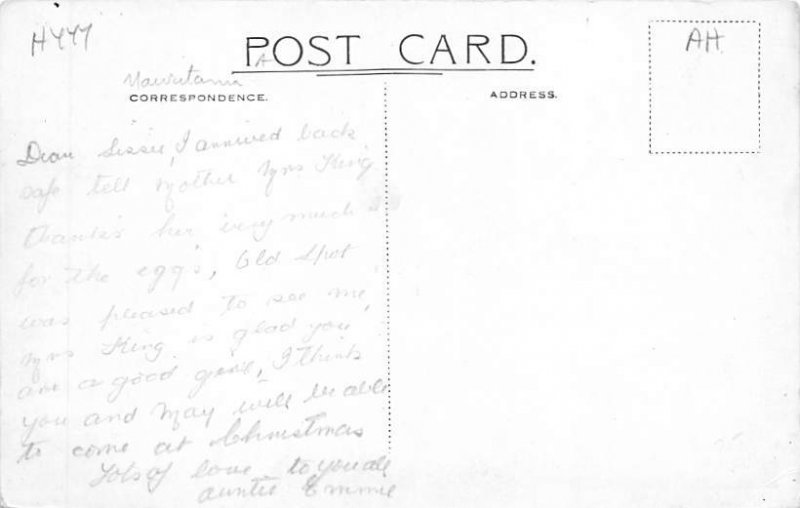 H447
POST CARD.
AH
Mauritania
CORRESPONDENCE.
ADDRESS.
Dear Sissie, I arrived back
safe tell Mother Mrs King
thanks her very much
for the eggs, Old Spot
was pleased to see me,
Mrs King is glad you
are a good girl, I think
you and May will be able
to come at Christmas
Lots of love to you all
auntie Emmie